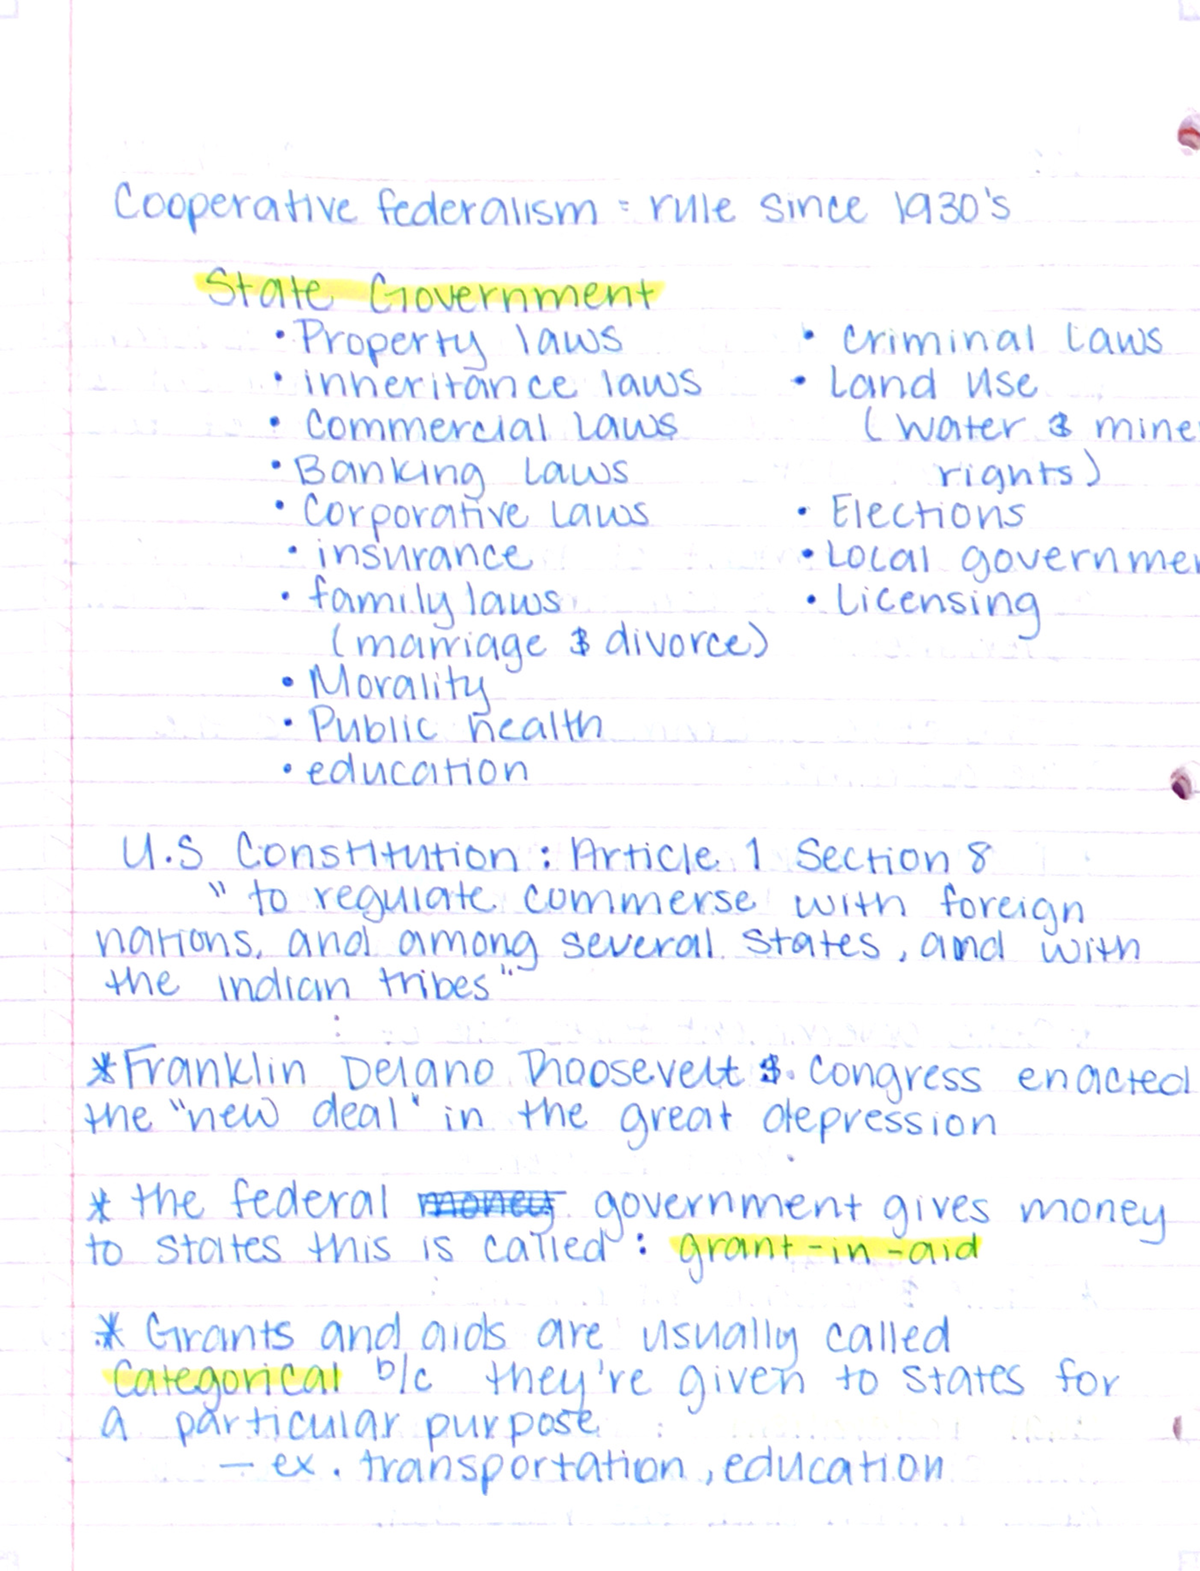 Cooperative federalism = rule since 1930's
State Government
• Property laws
• inheritance laws
• Commercial Laws
• Banking Laws
• Corporative Laws
• insurance
• family laws
(marriage & divorce)
• Morality
• Public health
• education
• Criminal Laws
• Land Use
(water & mine
rights)
• Elections
• Local governmen
• Licensing
U.S Constitution : Article 1 Section 8
" to regulate commerse with foreign
nations, and among several states, and with
the indian tribes"
*Franklin Delano Rhoosevelt & Congress enacted
the "new deal" in the great depression
* the federal money government gives money
to states this is called : grant-in-aid
* Grants and aids are usually called
Categorical b/c they're given to states for
a particular purpose
- ex. transportation, education